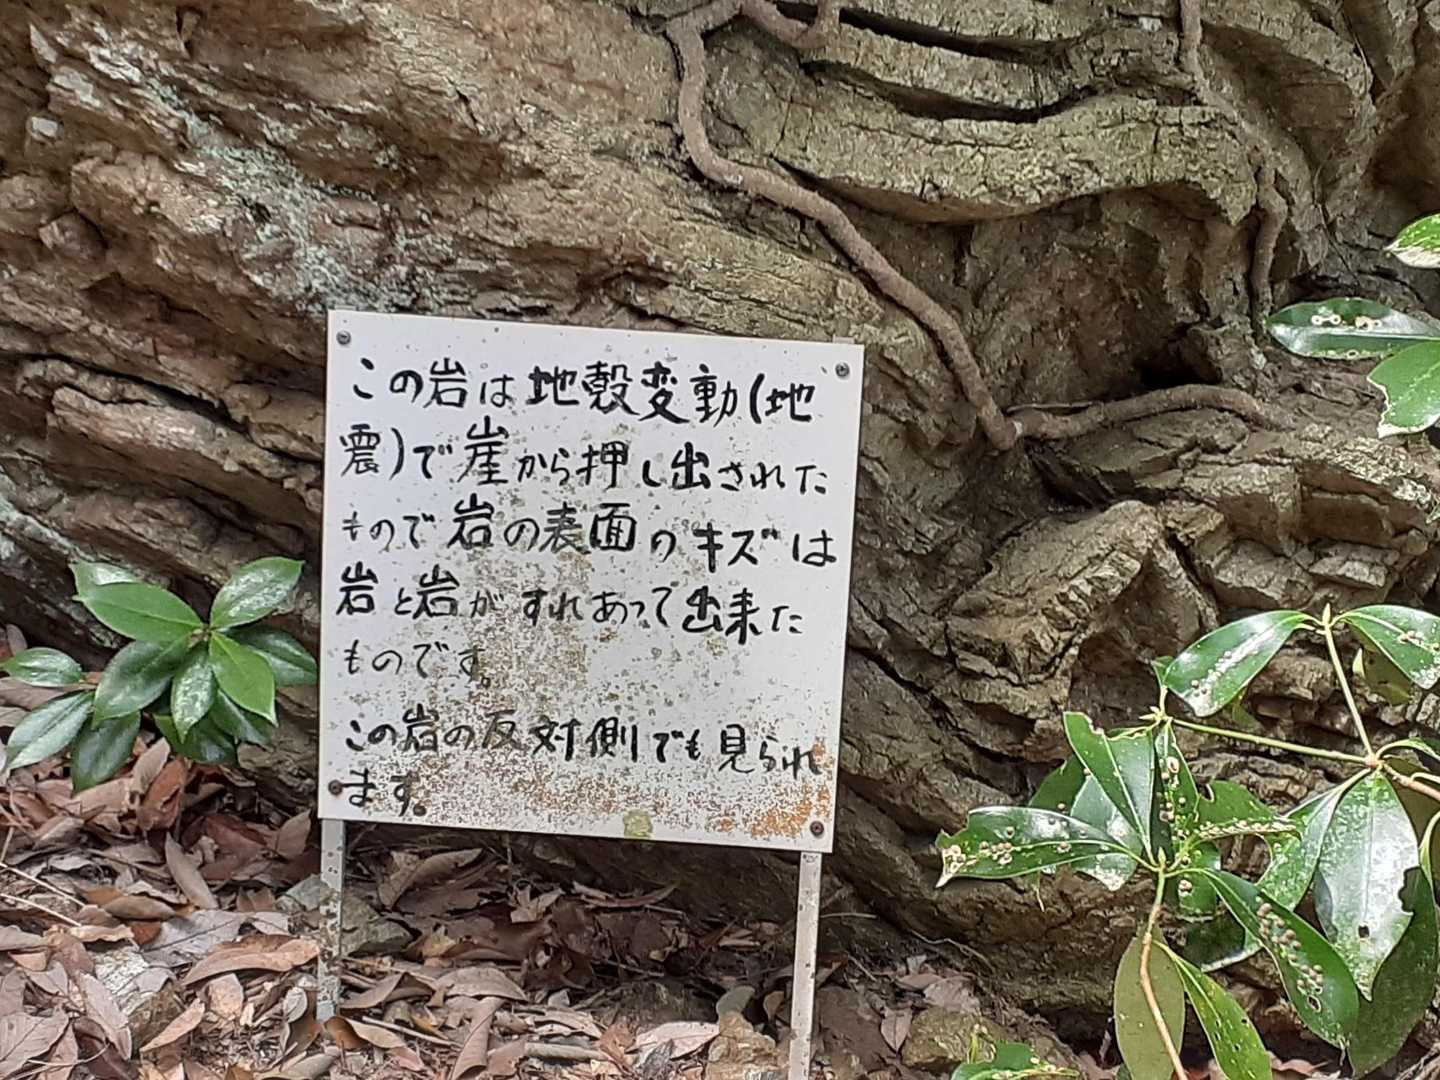 この岩は地殻変動(地
震)で崖から押し出された
もので岩の表面のキズは
岩と岩がすれあって出来た
ものです。
この岩の反対側でも見られ
ます。